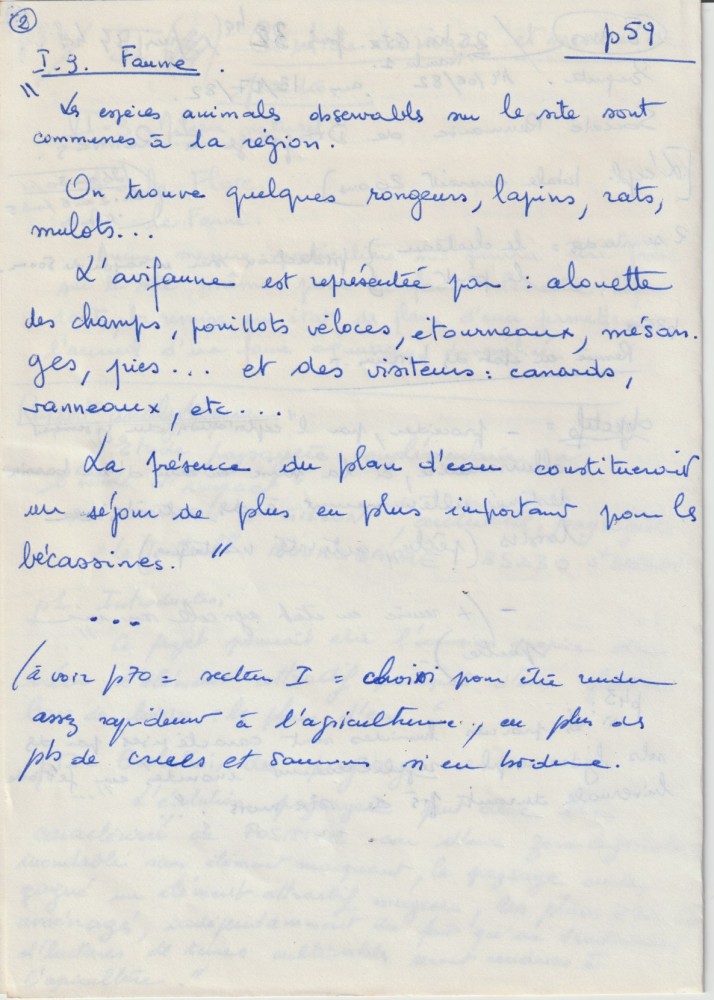 2
p59
I-3. Faune.
" Les espèces animals observables sur le site sont
communes à la région.
On trouve quelques rongeurs, lapins, rats,
mulots...
L'avifaune est représentée par : alouette
des champs, pouillots véloces, étourneaux, mésan-
ges, pies... et des visiteurs : canards,
vanneaux, etc...
La présence du plan d'eau constituerait
un séjour de plus en plus important pour les
bécassines. "
...
(à voir p70 = secteur I = choisi pour être rendu
assez rapidement à l'agriculture, en plus des
pbs de et si en bordure.